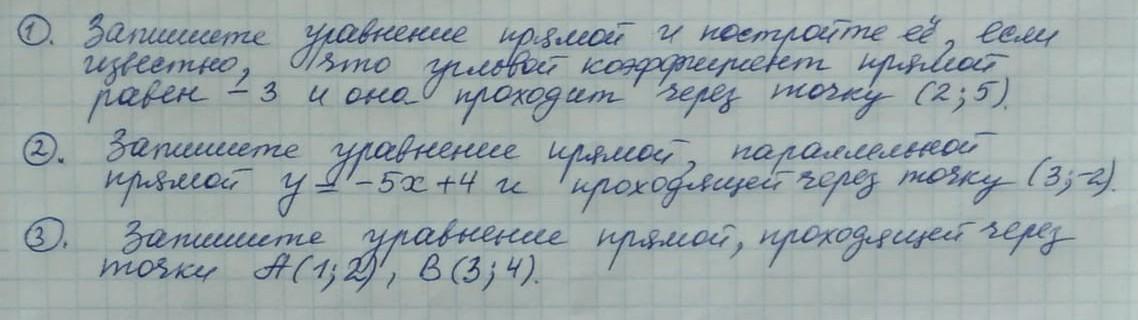 ①. Запишите уравнение прямой и постройте её, если
известно, что угловой коэффициент прямой
равен -3 и она проходит через точку (2;5).
②. Запишите уравнение прямой, параллельной
прямой y = -5x+4 и проходящей через точку (3;-2).
③. Запишите уравнение прямой, проходящей через
точки A(1;2), B(3;4).